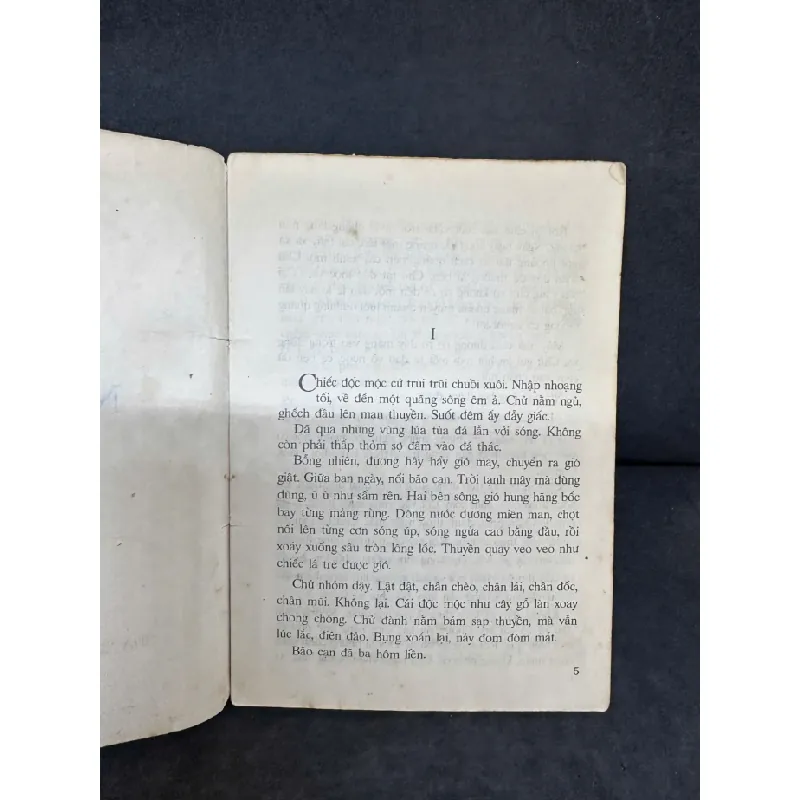 I
Chiếc độc mộc cứ trui trũi chuồi xuôi. Nhập nhoạng
tối, về đến một quãng sông êm ả. Chử nằm ngủ,
ghếch đầu lên mạn thuyền. Suốt đêm ấy đẫy giấc.
Đã qua những vùng lúa tủa đá lẫn với sóng. Không
còn phải thấp thỏm sợ đâm vào đá thác.
Bỗng nhiên, đương hây hẩy gió may, chuyển ra gió
giật. Giữa ban ngày, nổi bão cạn. Trời tạnh mây mà đùng
đùng, ù ù như sấm rền. Hai bên sông, gió hung hăng bốc
bay từng mảng rừng. Dòng nước đương miên man, chợt
nổi lên từng cơn sóng úp, sóng ngửa cao bằng đầu, rồi
xoáy xuống sâu tròn lông lốc. Thuyền quay veo veo như
chiếc lá tre được gió.
Chử nhỏm dậy. Lật đật, chân chèo, chân lái, chân đốc,
chân mũi. Không lại. Cái độc mộc như cây gỗ lăn xoay
chong chóng. Chử đành nằm bám sạp thuyền, mà vẫn
lúc lắc, điên đảo. Bụng xoắn lại, nảy đom đóm mắt.
Bão cạn đã ba hôm liền.
5